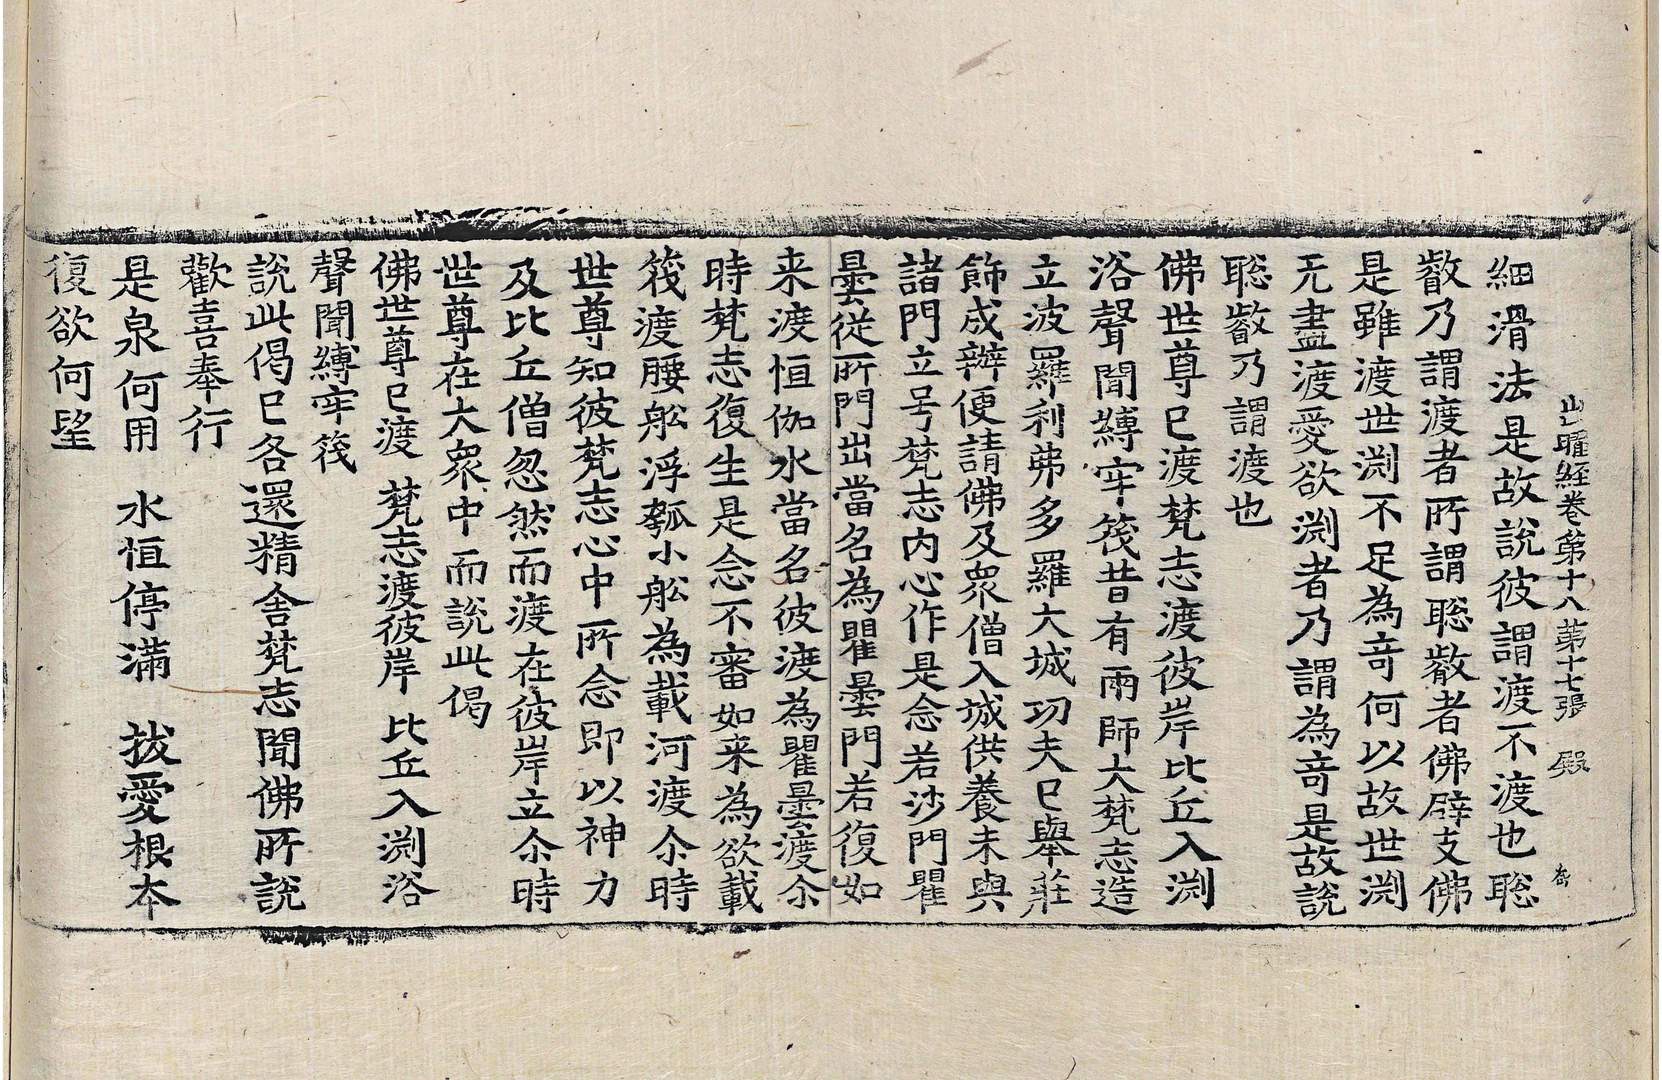 出曜経卷第十八 第十七張 殿
細滑法是故說彼謂渡不渡也聡
叡乃謂渡者所謂聡叡者佛辟支佛
是雖渡世渕不足為竒何以故世渕
无盡渡愛欲渕者乃謂為竒是故說
聡叡乃謂渡也
佛世尊已渡梵志渡彼岸比丘入渕
浴聲聞縛牢筏昔有雨師大梵志造
立波羅利弗多羅大城功夫已舉莊
飾成辦便請佛及衆僧入城供養未與
諸門立号梵志内心作是念若沙門瞿
曇從所門出當名為瞿曇門若復如
来渡恒伽水當名彼渡為瞿曇渡尒
時梵志復生是念不審如来為欲載
筏渡腰舩浮瓠小舩為載河渡尒時
世尊知彼梵志心中所念即以神力
及比丘僧忽然而渡在彼岸立尒時
世尊在大衆中而說此偈
佛世尊已渡 梵志渡彼岸 比丘入渕浴
聲聞縛牢筏
說此偈已各還精舍梵志聞佛所說
歡喜奉行
是泉何用 水恒停滿 拔愛根本
復欲何望